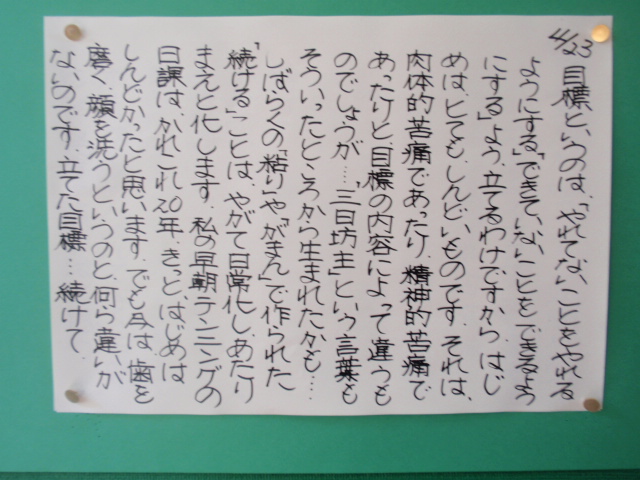 4/23
目標というのは、「やれてないことをやれる
ようにする」「できていないことをできるよう
にする」よう立てるわけですから、はじ
めは、とても、しんどいものです。それは、
肉体的苦痛であったり 精神的苦痛で
あったりと、目標の内容によって違うも
のでしょうが…、「三日坊主」という言葉も
そういったところから生まれたかも…
しばらくの「粘り」や「がまん」で作られた
「続ける」ことは、やがて日常化しあたり
まえと化します。私の早朝テンニングの
日課は かれこれ20年、きっと、はじめは
しんどかったと思います。でも今は、歯を
磨く、顔を洗うというのと、何ら違いが
ないのです。立てた目標…続けて、